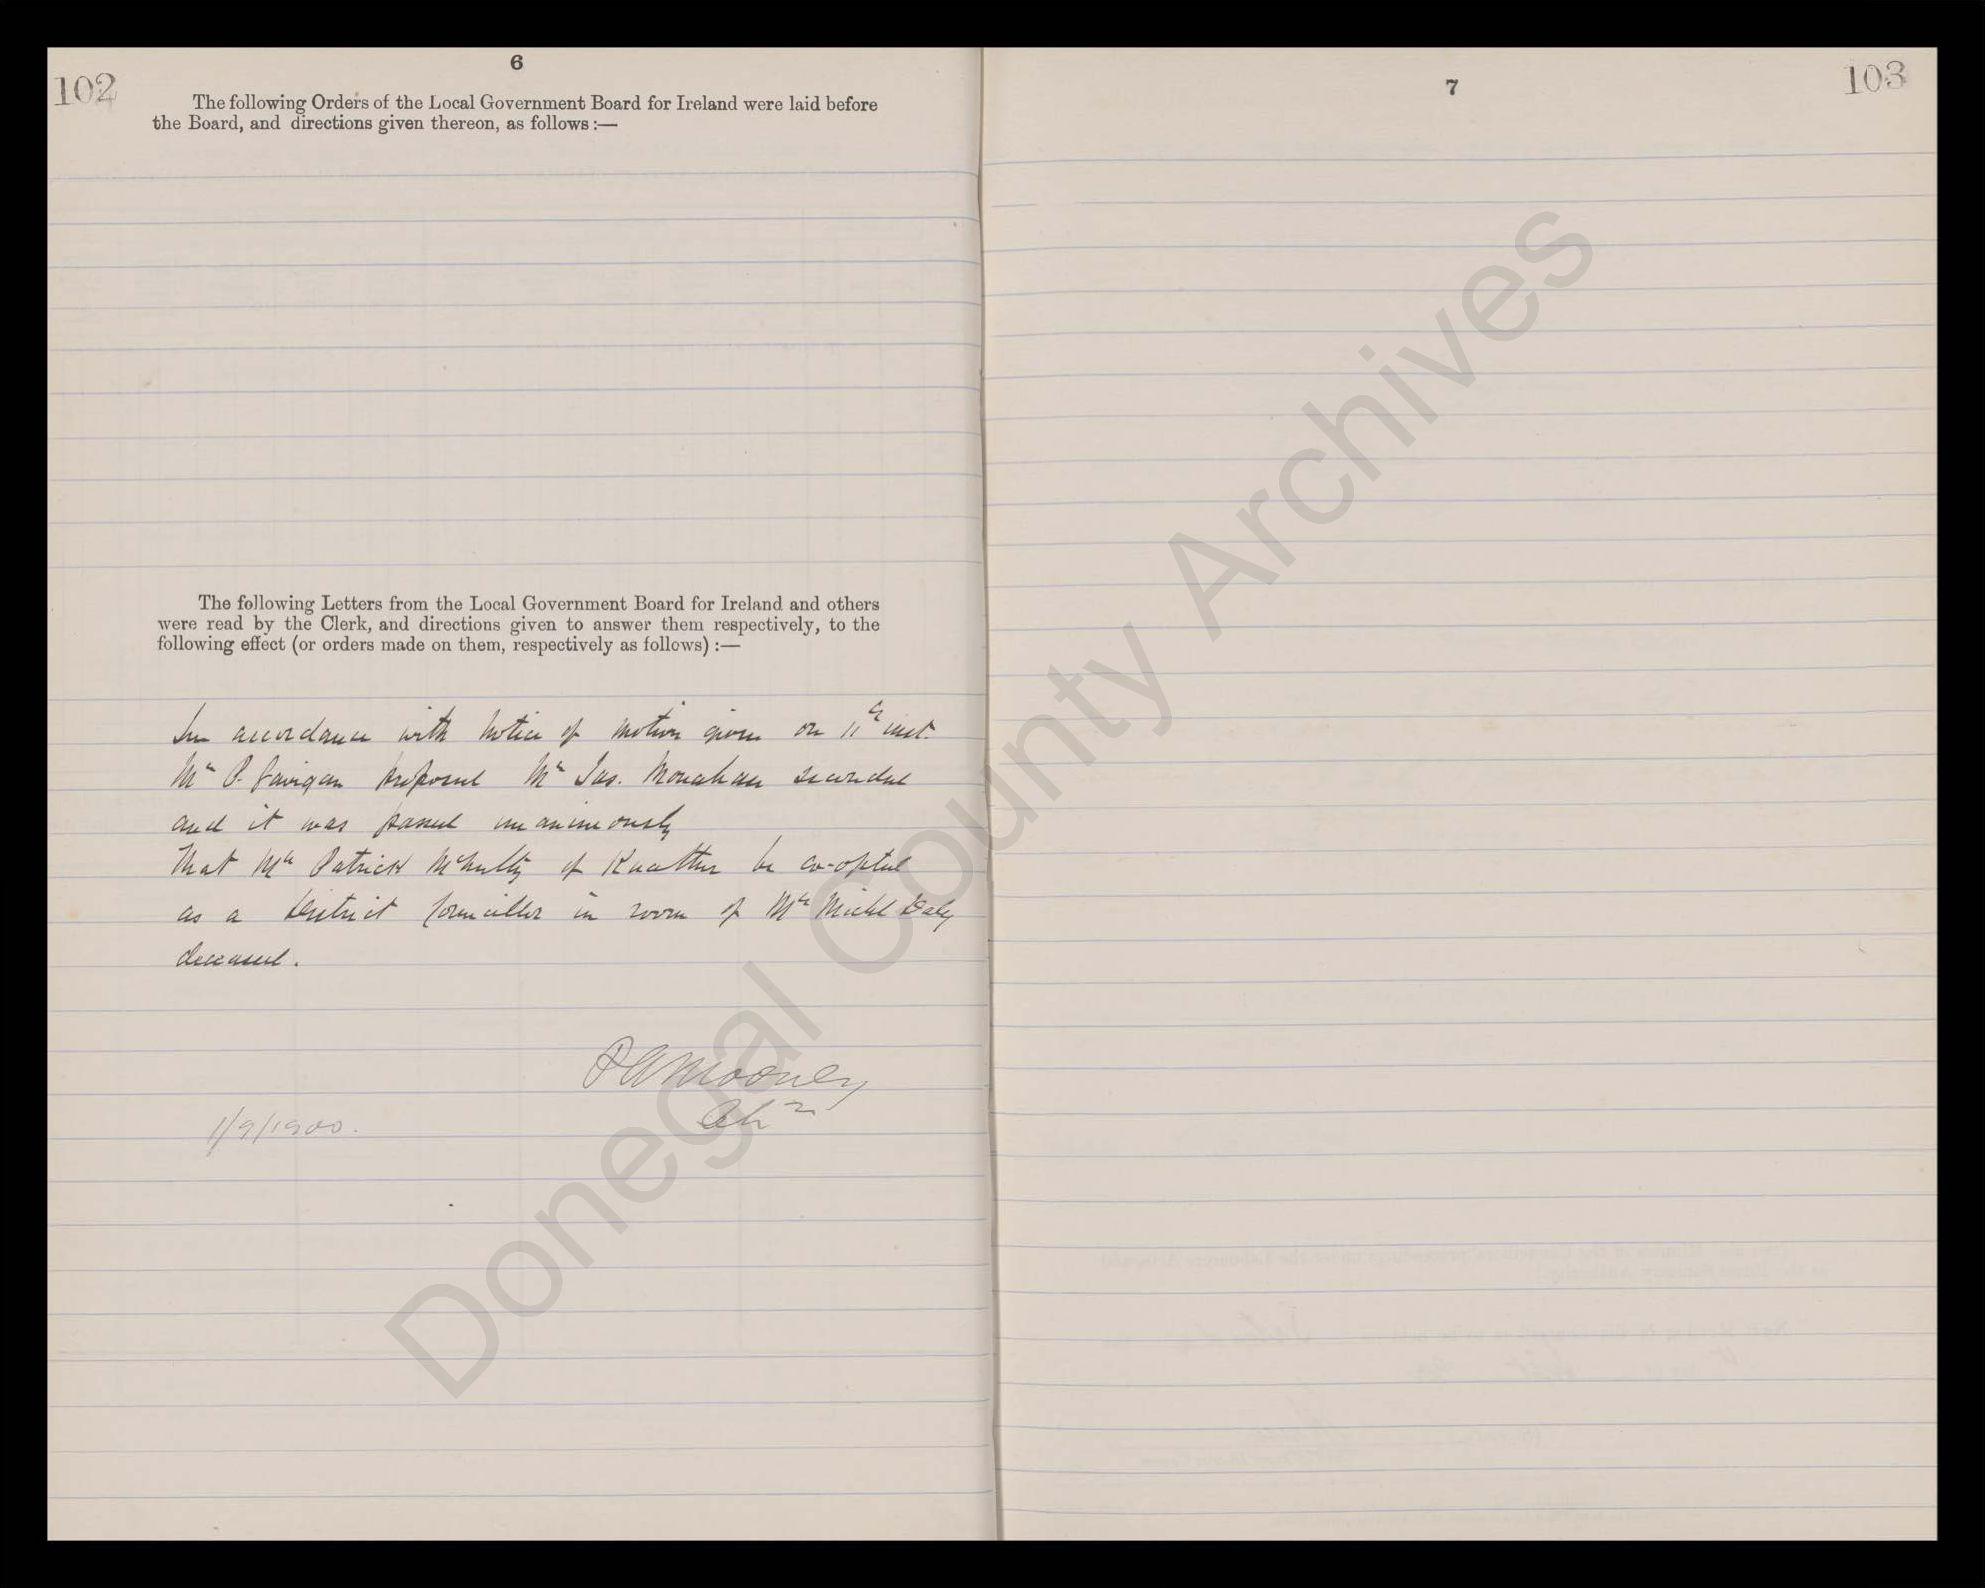 102
6
The following Orders of the Local Government Board for Ireland were laid before
the Board, and directions given thereon, as follows :—
The following Letters from the Local Government Board for Ireland and others
were read by the Clerk, and directions given to answer them respectively, to the
following effect (or orders made on them, respectively as follows) :—
In accordance with notice of motion given on 11th inst.
Mr P. Gavigan proposed Mr Jas. Monahan seconded
and it was passed unanimously
That Mr Patrick McNulty of Knather be co-opted
as a District Councillor in room of Mr Michl Daly
deceased.
PAMooney
Chn
1/9/1900.
7
103
Donegal County Archives